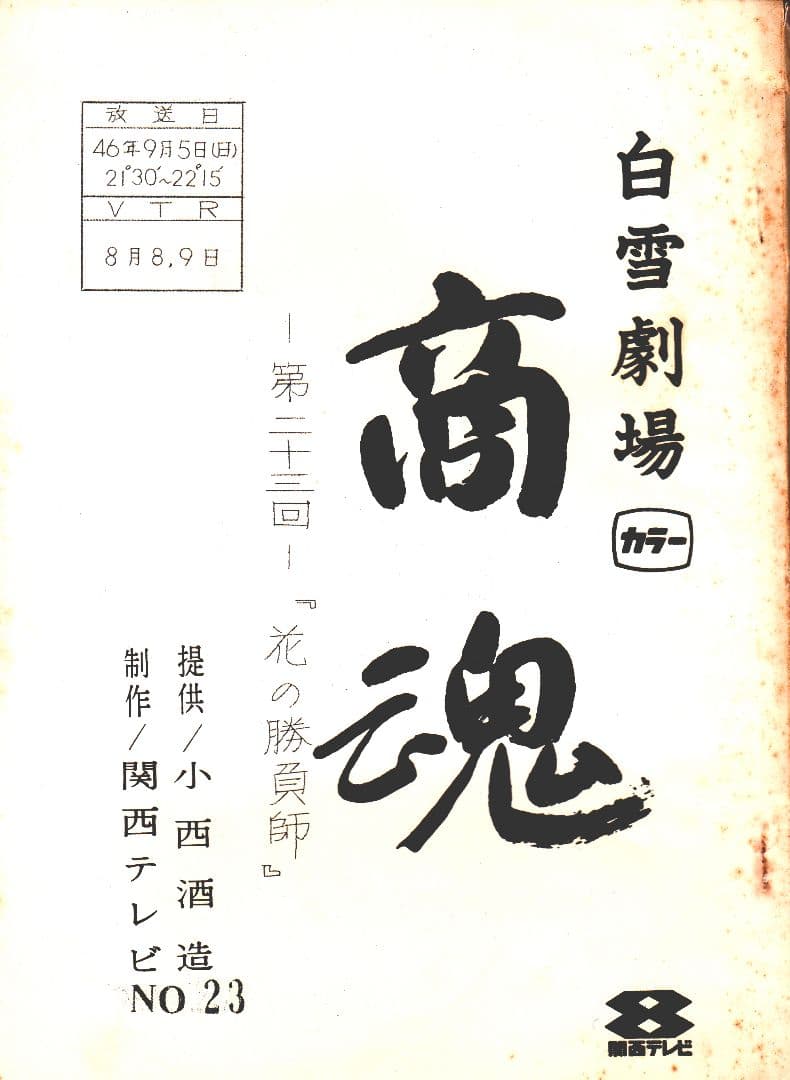 白雪劇場
カラー
商魂
－第二十三回－『花の勝負師』
放送日
46年9月5日(日)
21°30′～22°15′
VTR
8月8,9日
提供／小西酒造
制作／関西テレビ
NO 23
8
関西テレビ